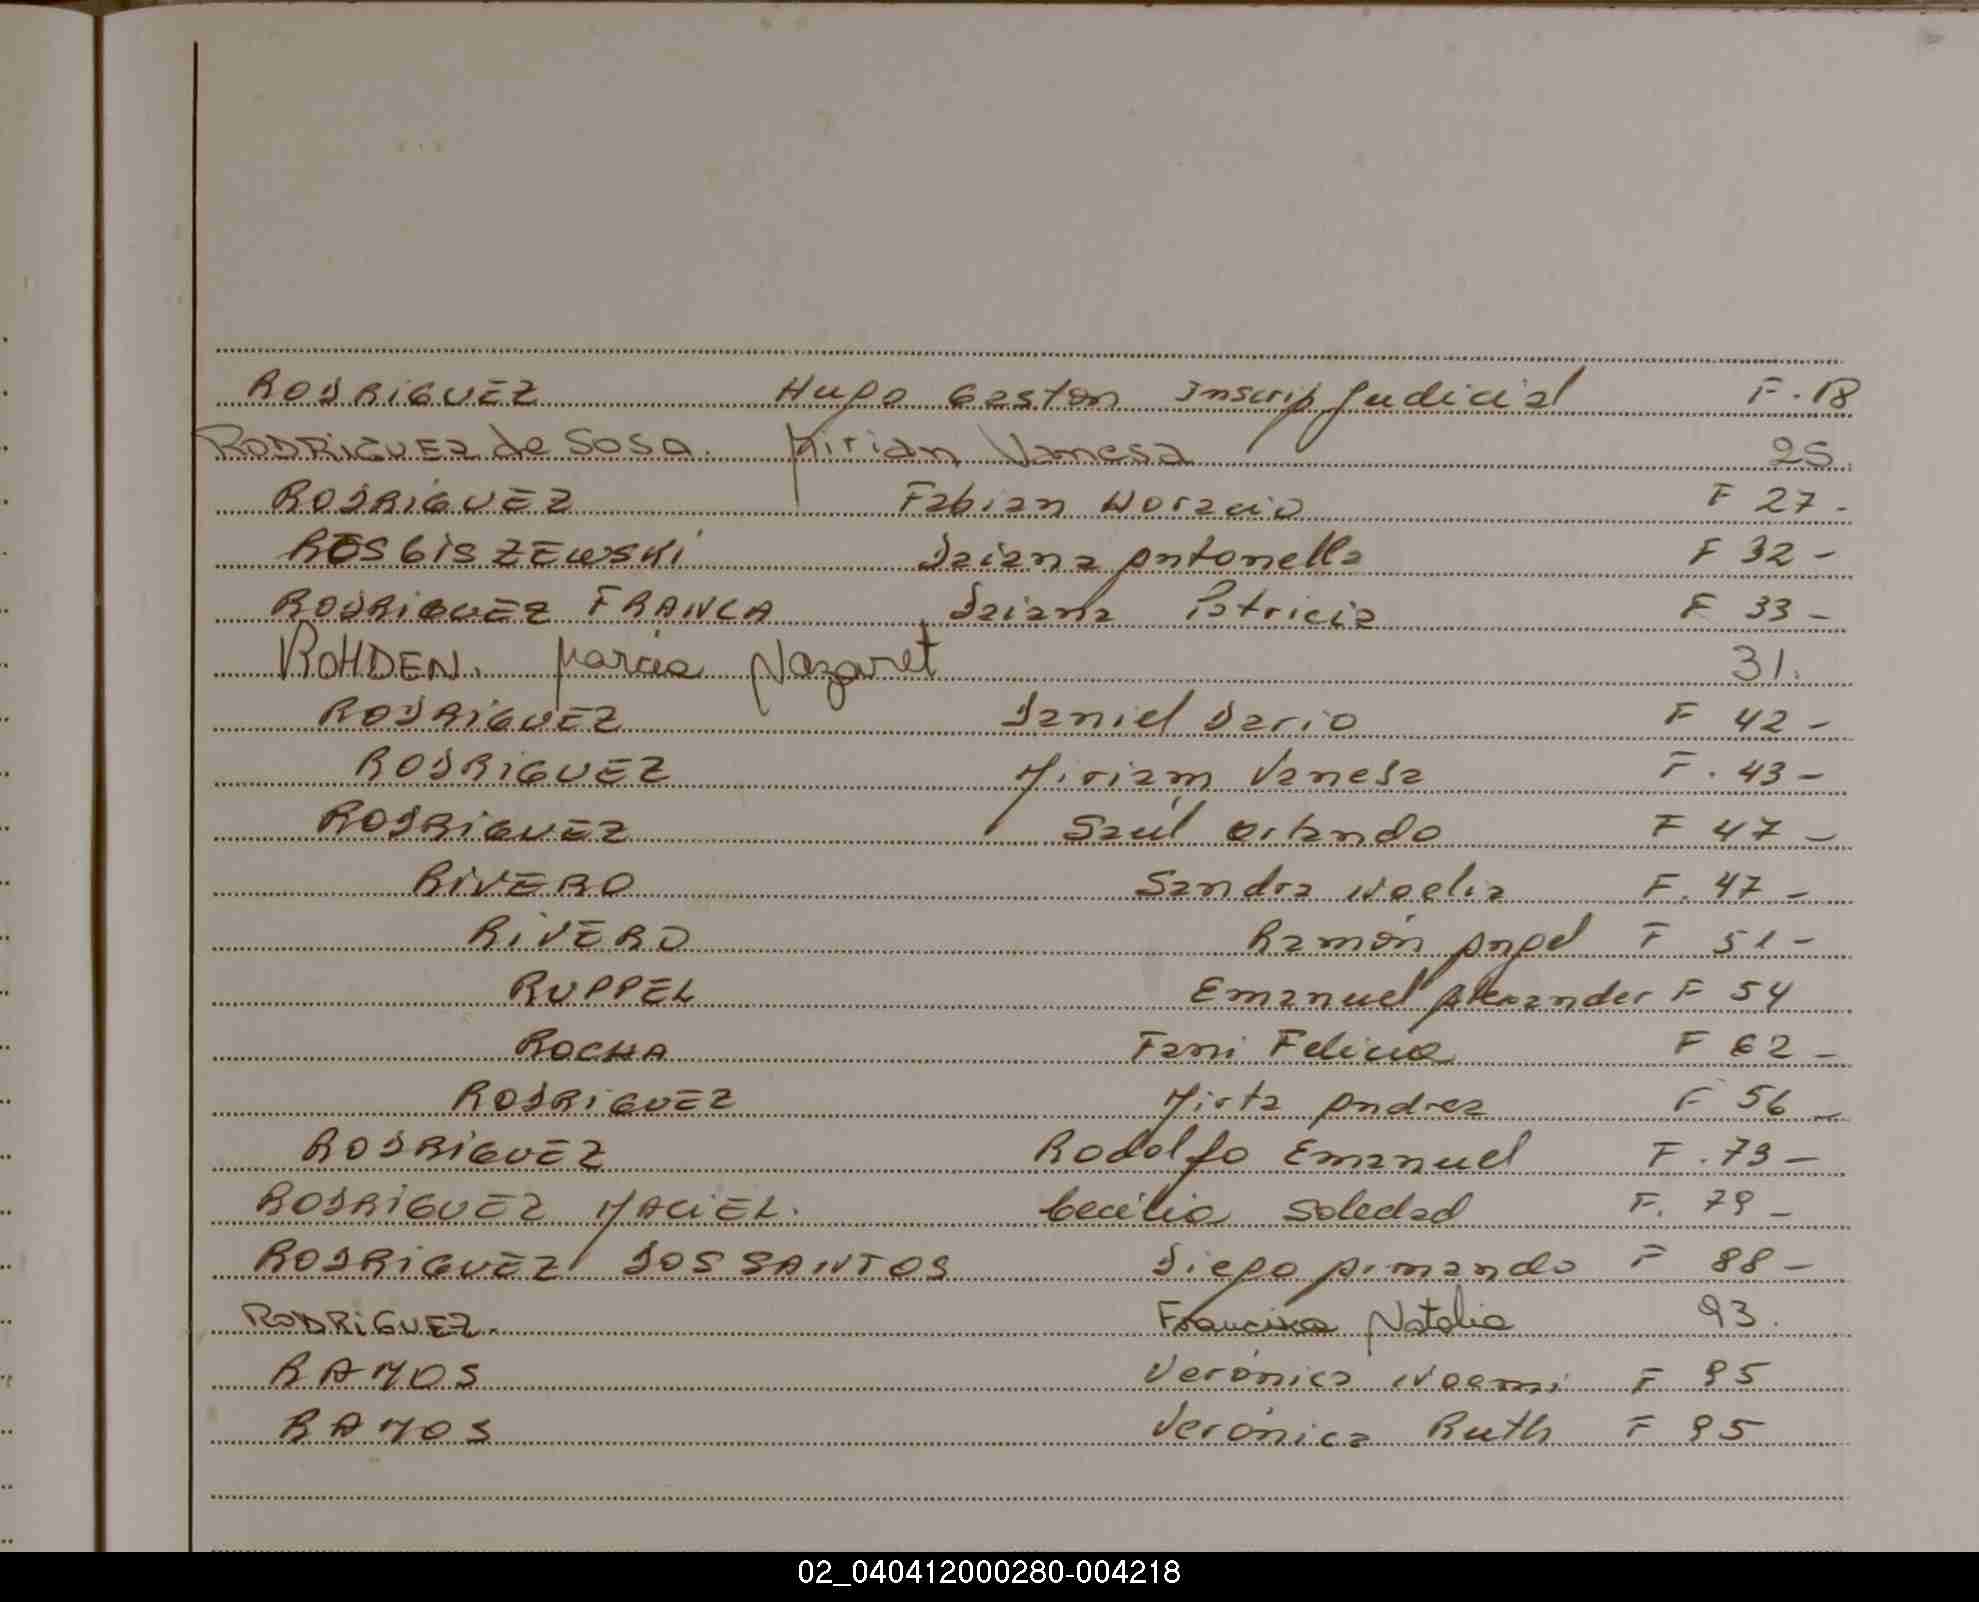 RODRiGUEZ Hugo Gaston Inscrip Judicial F. 18
RODRiGUEZ de SOSA. Mirian Vanesa 25.
RODRiGUEZ Fabian Horacio F 27-
ROSGiSZEWSKi Daiana Antonella F 32-
RODRiGUEZ FRANCA Daiana Patricia F 33-
ROHDEN. Marcia Nazaret 31.
RODRiGUEZ Daniel Dario F 42-
RODRiGUEZ Miriam Vanesa F. 43-
RODRiGUEZ Saúl Orlando F 47-
RiVERO Sandra Noelia F. 47-
RiVERO Ramón Angel F 51-
RUPPEL Emanuel Alexander F 54
ROCHA Fani Felicia F 62-
RODRiGUEZ Mirta Andrea F 56-
RODRiGUEZ Rodolfo Emanuel F. 79-
RODRiGUEZ MACiEL. Cecilia Soledad F. 79-
RODRiGUEZ DOS SANTOS Diego Armando F 88-
RODRiGUEZ. Francisca Natalia 93.
RAMOS Verónica Noemi F 95
RAMOS Verónica Ruth F 95
02_040412000280-004218